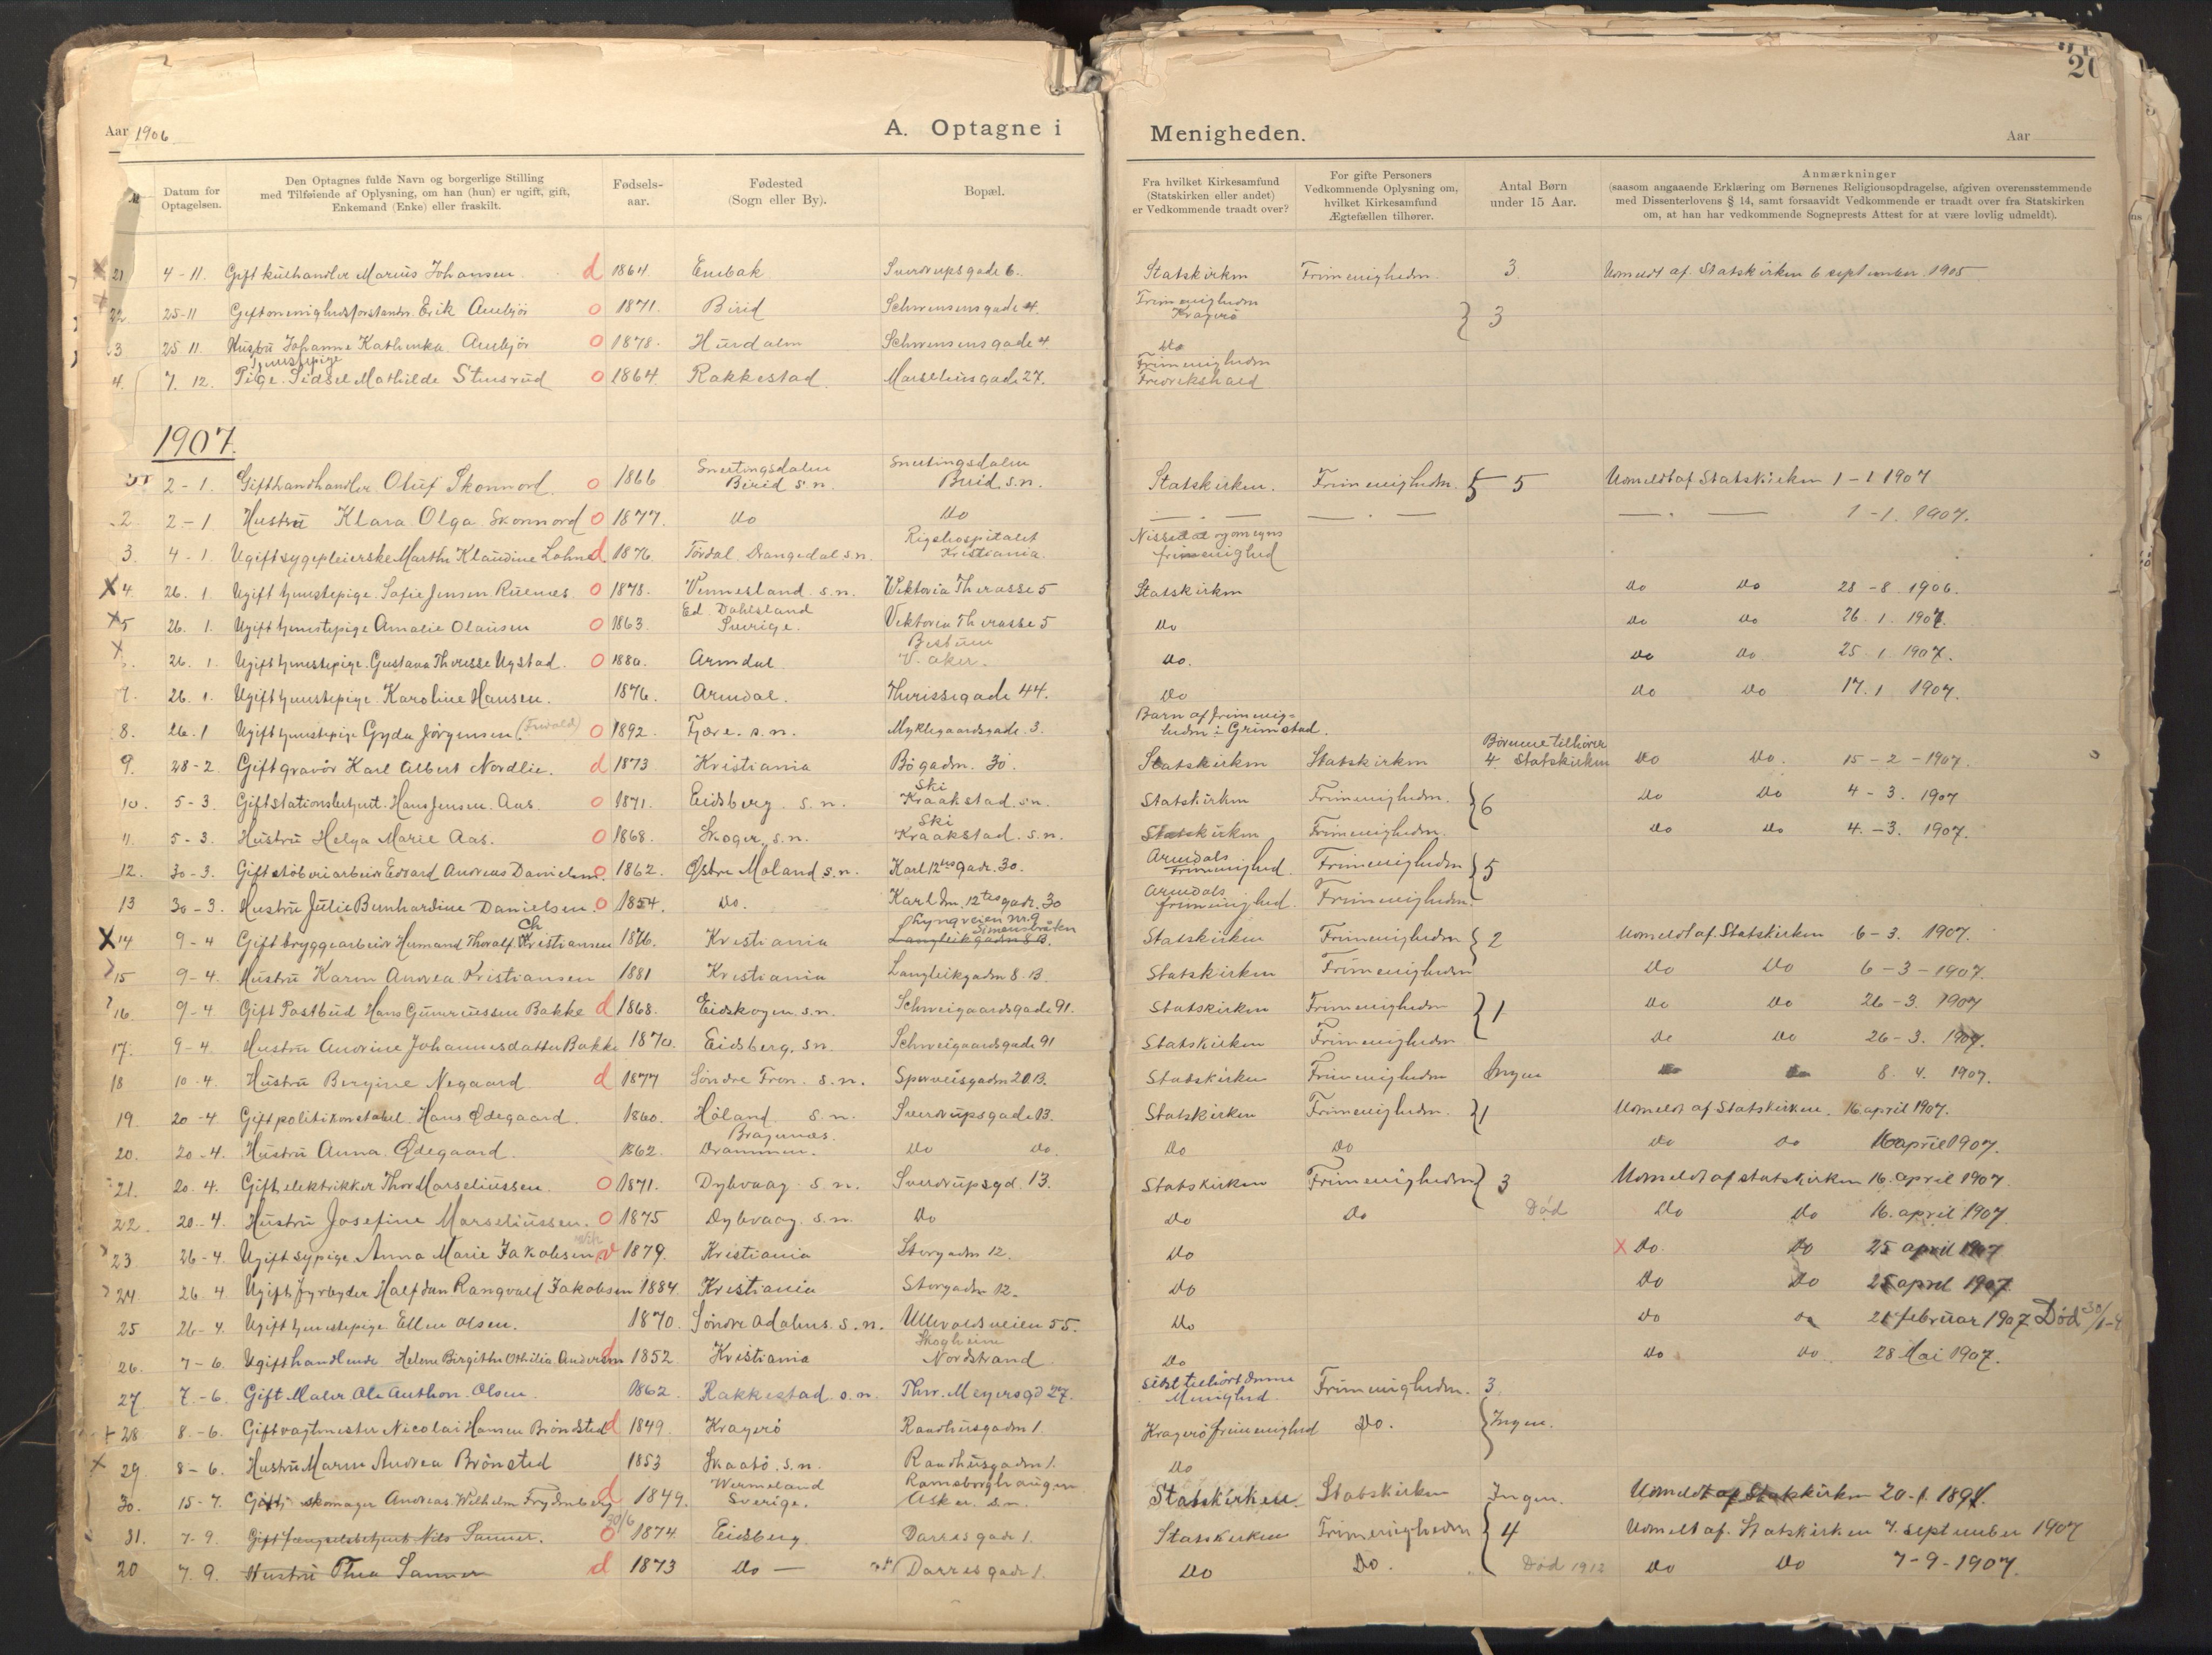 Aar 1906
A. Optagne i Menigheden.
Aar
20
№
Datum for Optagelsen.
Den Optagnes fulde Navn og borgerlige Stilling
med Tilføiende af Oplysning, om han (hun) er ugift, gift,
Enkemand (Enke) eller fraskilt.
Fødsels-
aar.
Fødested
(Sogn eller By).
Bopæl.
Fra hvilket Kirkesamfund
(Statskirken eller andet)
er Vedkommende traadt over?
For gifte Personers
Vedkommende Oplysning om,
hvilket Kirkesamfund
Ægtefællen tilhører.
Antal Børn
under 15 Aar.
Anmærkninger
(saasom angaaende Erklæring om Børnenes Religionsopdragelse, afgiven overensstemmende
med Dissenterlovens § 14, samt forsaavidt Vedkommende er traadt over fra Statskirken
om, at han har vedkommende Sogneprests Attest for at være lovlig udmeldt).
x 21 4-11. Gift kulhandler Marius Johansen d 1864 Enebak Sverdrupsgade 6. Statskirken Frimenigheden. 3. Udmeldt af Statskirken 6 september 1905
x 22. 25-11 Gift menighedsforstander Erik Ambjør o 1871. Birid Schwensensgade 4. Frimenigheden Kragerö } 3
3 25 11. Hustru Johanne Kathinka Ambjør o 1878. Hurdalen Schwensensgade 4 Do
4. 7. 12. Tjenestepige Pige Sidsel Mathilde Stensrud o 1864 Rakkestad Marselius gade 27. Frimenigheden Fredrikshald
1907.
2-1. Gift handler Oluf Skonnord. o 1866 Snertingsdalen Birid s.n. Snertingsdalen Birid s.n. Statskirken. Frimenigheden. 5 Udmeldt af Statskirken 1-1 1907
2 2-1 Hustru Klara Olga Skonnord o 1877. Do Do — . — — . — — . — 1-1. 1907.
3. 4-1. Ugift sygepleierske Marthe Klaudine Lohne d 1876 Tördal Drangedal s.n. Rigshospitalet Kristiania. Nissedal og omegns frimenighed
X 4. 26. 1. Ugift tjenestepige Sofie Jensen o 1878. Vennesland s.n. Wektoria Therasse 5 Statskirken Do Do 28-8. 1906.
x 5 26. 1. Ugift tjenestepige Amalie Olausen o 1863. Ed. Dahlsland Sverige. Vektoria Therasse 5 Do Do Do 26. 1. 1907.
x 26. 1. Ugift tjenestepige Gustava Theresse Ugstad. o 1880. Arendal Bestum V. aker. Do. Do Do 25. 1. 1907.
7. 26. 1. Ugift tjenestepige Karoline Hansen. 1876. Arendal. Therissegade 44. Do Do Do 17. 1 1907.
8. 26. 1 Ugift tjenestepige Gyda Jørgensen o 1892. Fjære s.n. Myklegaardsgade. 3. Barn af frimenigheden i Grimstad.
9. 28-2. Gift gravör Karl Albert Nordlie. d 1873 Kristiania Bögaden. 30. Statskirken Statskirken 4 Börnene tilhörer Statskirken Do Do. 15-2-1907.
10. 5-3. Gift stationsbetjent Hans Jensen Aas. o 1871. Eidsberg s.n. Ski Kraakstad s.n. Statskirken Frimenigheden. } 6 Do Do 4-3. 1907
11. 5-3. Hustru Helga Marie Aas. o 1868. Skoger s.n. Ski Kraakstad. s.n. Statskirken Frimenigheden. Do Do 4.-3. 1907.
12. 30-3. Gift støberiarbeider Edvard Andreas Danielsen o 1862. Østre Moland s.n. Karl 12tes gade. 30. Arendals frimenighed. Frimenigheden } 5
13 30-3. Hustru Julie Bernhardine Danielsen. o 1854. Do. Karl den 12tes gade. 30 Arendals frimenighed. Frimenigheden.
X 14 9-4 Gift bryggearbeider Hermand Thoralf Christiansen 1876. Kristiania Lyngveien nr. 9 Simensbråten Langleikgaden 8 B. Statskirken Frimenigheden } 2 Udmeldt af Statskirken 6-3. 1907.
15 9-4. Hustru Karen Andrea Kristiansen 1881 Kristiania Langleikgaden 8. B Statskirken Frimenigheden Do Do 6-3-1907.
16. 9-4 Gift Postbud Hans Gunerussen Bakke d 1868. Eidskogen s.n. Schweigaardsgade 91. Statskirken Frimenigheden } 1 Do Do 26-3. 1907
17. 9-4. Hustru Andrine Johannesdatter Bakke 1870. Eidsberg. s.n. Schweigaardsgade 91 Statskirken Frimenigheden Do Do 26-3. 1907.
18 10-4. Hustru Bergine Negaard d 1877 Söndre Fron s.n. Sperveisgaden 20 B. Statskirken Frimenigheden Ingen 8. 4. 1907.
19. 20-4 Gift politikonstabel Hans Ødegaard. 1860. Höland s.n. Sverdrupsgade 13. Statskirken Frimenigheden. } 1 Udmeldt af Statskirken. 16 april 1907.
20. 20-4. Hustru Anna Ødegaard. 1862. Bragenæs. Drammen. Do Do. Do Do Do Do 16 april 1907.
21. 20. 4. Gift elektrikker Thor Marseliussen. o 1871. Dybvaag s.n. Sverdrupsgd 13. Statskirken Frimenigheden } 3 Udmeldt af statskirken 16. april 1907.
22. 20-4. Hustru Josefine Marseliussen. o 1875 Dybvaag. s.n. Do Do Do Død Do Do 16. april 1907.
23 26-4. Ugift sypige Anna Marie Jakobsen 1879. Kristiania Storgaden 12. Do x Do. Do 25 april 1907
24. 26. 4 Ugift fyrbøder Halfdan Rangvald Jakobsen 1884 Kristiania Storgaden 12. Do Do Do 25 april 1907
25 26-4. Ugift tjenestepige Ellen Olsen. 1870. Söndre Adalens s.n. Ullevaldsveien 55. Do Do Do 21 februar 1907 Død
26. 7-6. Ugift handlende Helene Birgithe Othilia Andersen d 1852 Kristiania Skogheim Nordstrand Do Do Do 28 Mai 1907.
27. 7-6. Gift Maler Ole Anthon Olsen. 1862. Rakkestad s.n. Thv. Meyersgd 27. sidst tilhört denne Menighed. Frimenigheden. 3.
+ 28 8.-6. Gift vagtmester Nicolai Hansen Brönsted d 1849. Kragerö Raadhusgaden 1. Kragerö frimenighed Do. } Ingen.
x 29. 8-6. Hustru Maren Andrea Brönsted 1853 Skaatö. s.n. Raadhusgaden 1. Do
30. 15-7. Gift skomager Andreas Wilhelm Frydenberg d 1849. Wermeland Sverige. Ramsborghaugen Asker s.n. Statskirken Statskirken Ingen. Udmeldt af Statskirken 20-1. 1894.
31. 7-9. Gift fængselsbetjent Nils Sanner. 30/6 o 1874. Eidsberg Darresgade 1. Statskirken Frimenigheden } 4 Udmeldt af. Statskirken 7. september 1907
20 7. 9. Hustru Thea Sanner d 1873 Do — Darresgade 1. Do Do. Død 1912 Do Do 7-9-1907.